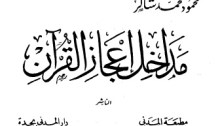 محمود محمد شاكر
مداخل إعجاز القرآن
الناشر
مطبعة المدني
دار المدني بجدة